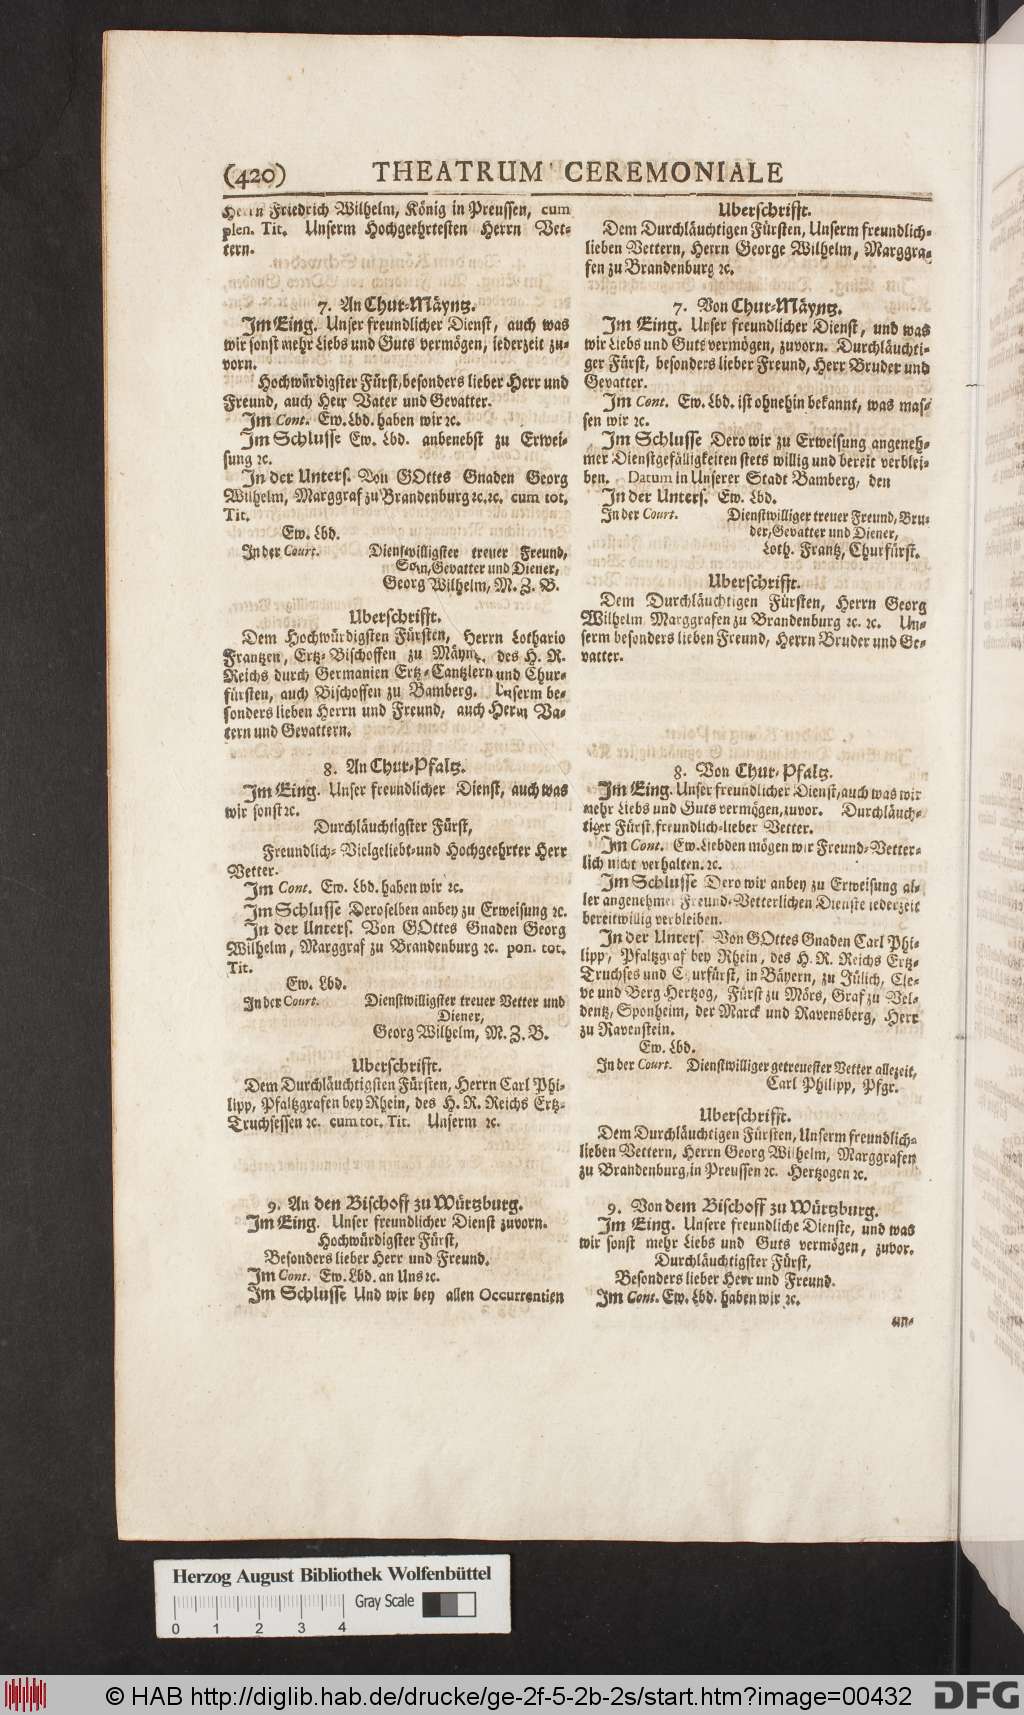 (420) THEATRUM CEREMONIALE
Herrn Friedrich Wilhelm, König in Preussen, cum
plen. Tit. Unserm Hochgeehrtesten Herrn Vet-
tern.
7. An Chur-Mäyntz.
Im Eing. Unser freundlicher Dienst, auch was
wir sonst mehr Liebs und Guts vermögen, jederzeit zu-
vorn.
Hochwürdigster Fürst, besonders lieber Herr und
Freund, auch Herr Vater und Gevatter.
Im Cont. Ew. Lbd. haben wir ꝛc.
Im Schlusse Ew. Lbd. anbenebst zu Erwei-
sung ꝛc.
In der Unters. Von GOttes Gnaden Georg
Wilhelm, Marggraf zu Brandenburg ꝛc. ꝛc. cum tot.
Tit.
Ew. Lbd.
In der Court. Dienstwilligster treuer Freund,
Sohn, Gevatter und Diener,
Georg Wilhelm, M. Z. B.
Uberschrifft.
Dem Hochwürdigsten Fürsten, Herrn Lothario
Frantzen, Ertz-Bischoffen zu Mäyntz, des H. R.
Reichs durch Germanien Ertz-Cantzlern und Chur-
fürsten, auch Bischoffen zu Bamberg. Unserm be-
sonders lieben Herrn und Freund, auch Herrn Va-
tern und Gevattern.
8. An Chur-Pfaltz.
Im Eing. Unser freundlicher Dienst, auch was
wir sonst ꝛc.
Durchläuchtigster Fürst,
Freundlich-Vielgeliebt-und Hochgeehrter Herr
Vetter.
Im Cont. Ew. Lbd. haben wir ꝛc.
Im Schlusse Deroselben anbey zu Erweisung ꝛc.
In der Unters. Von GOttes Gnaden Georg
Wilhelm, Marggraf zu Brandenburg ꝛc. pon. tot.
Tit.
Ew. Lbd.
In der Court. Dienstwilligster treuer Vetter und
Diener,
Georg Wilhelm, M. Z. B.
Uberschrifft.
Dem Durchläuchtigsten Fürsten, Herrn Carl Phi-
lipp, Pfaltzgrafen bey Rhein, des H. R. Reichs Ertz-
Truchsessen ꝛc. cum tot. Tit. Unserm ꝛc.
9. An den Bischoff zu Würtzburg.
Im Eing. Unser freundlicher Dienst zuvorn.
Hochwürdigster Fürst,
Besonders lieber Herr und Freund.
Im Cont. Ew. Lbd. an Uns ꝛc.
Im Schlusse Und wir bey allen Occurrentien
Uberschrifft.
Dem Durchläuchtigen Fürsten, Unserm freundlich-
lieben Vettern, Herrn George Wilhelm, Marggra-
fen zu Brandenburg ꝛc.
7. Von Chur-Mäyntz.
Im Eing. Unser freundlicher Dienst, und was
wir Liebs und Guts vermögen, zuvorn. Durchläuchti-
ger Fürst, besonders lieber Freund, Herr Bruder und
Gevatter.
Im Cont. Ew. Lbd. ist ohnehin bekannt, was mas-
sen wir ꝛc.
Im Schlusse Dero wir zu Erweisung angeneh-
mer Dienstgefälligkeiten stets willig und bereit verblei-
ben. Datum in Unserer Stadt Bamberg, den
In der Unters. Ew. Lbd.
In der Court. Dienstwilliger treuer Freund, Bru-
der, Gevatter und Diener,
Loth. Frantz, Churfürst.
Uberschrifft.
Dem Durchläuchtigen Fürsten, Herrn Georg
Wilhelm, Marggrafen zu Brandenburg ꝛc. ꝛc. Un-
serm besonders lieben Freund, Herrn Bruder und Ge-
vatter.
8. Von Chur-Pfaltz.
Im Eing. Unser freundlicher Dienst, auch was wir
mehr Liebs und Guts vermögen, zuvor. Durchläuch-
tiger Fürst, freundlich-lieber Vetter.
Im Cont. Ew. Liebden mögen wir Freund-Vetter-
lich nicht verhalten. ꝛc.
Im Schlusse Dero wir anbey zu Erweisung al-
ler angenehmer Freund-Vetterlichen Dienste jederzeit
bereitwillig verbleiben.
In der Unters. Von GOttes Gnaden Carl Phi-
lipp, Pfaltzgraf bey Rhein, des H. R. Reichs Ertz-
Truchses und Churfürst, in Bäyern, zu Jülich, Cle-
ve und Berg Hertzog, Fürst zu Mörs, Graf zu Vel-
dentz, Sponheim, der Marck und Ravensberg, Herr
zu Ravenstein.
Ew. Lbd.
In der Court. Dienstwilliger getreuester Vetter allezeit,
Carl Philipp, Pfgr.
Uberschrifft.
Dem Durchläuchtigen Fürsten, Unserm freundlich-
lieben Vettern, Herrn Georg Wilhelm, Marggrafen
zu Brandenburg, in Preussen ꝛc. Hertzogen ꝛc.
9. Von dem Bischoff zu Würtzburg.
Im Eing. Unsere freundliche Dienste, und was
wir sonst mehr Liebs und Guts vermögen, zuvor.
Durchläuchtigster Fürst,
Besonders lieber Herr und Freund.
Im Cont. Ew. Lbd. haben wir ꝛc.
an-
Herzog August Bibliothek Wolfenbüttel
Gray Scale
0 1 2 3 4
© HAB http://diglib.hab.de/drucke/ge-2f-5-2b-2s/start.htm?image=00432 DFG